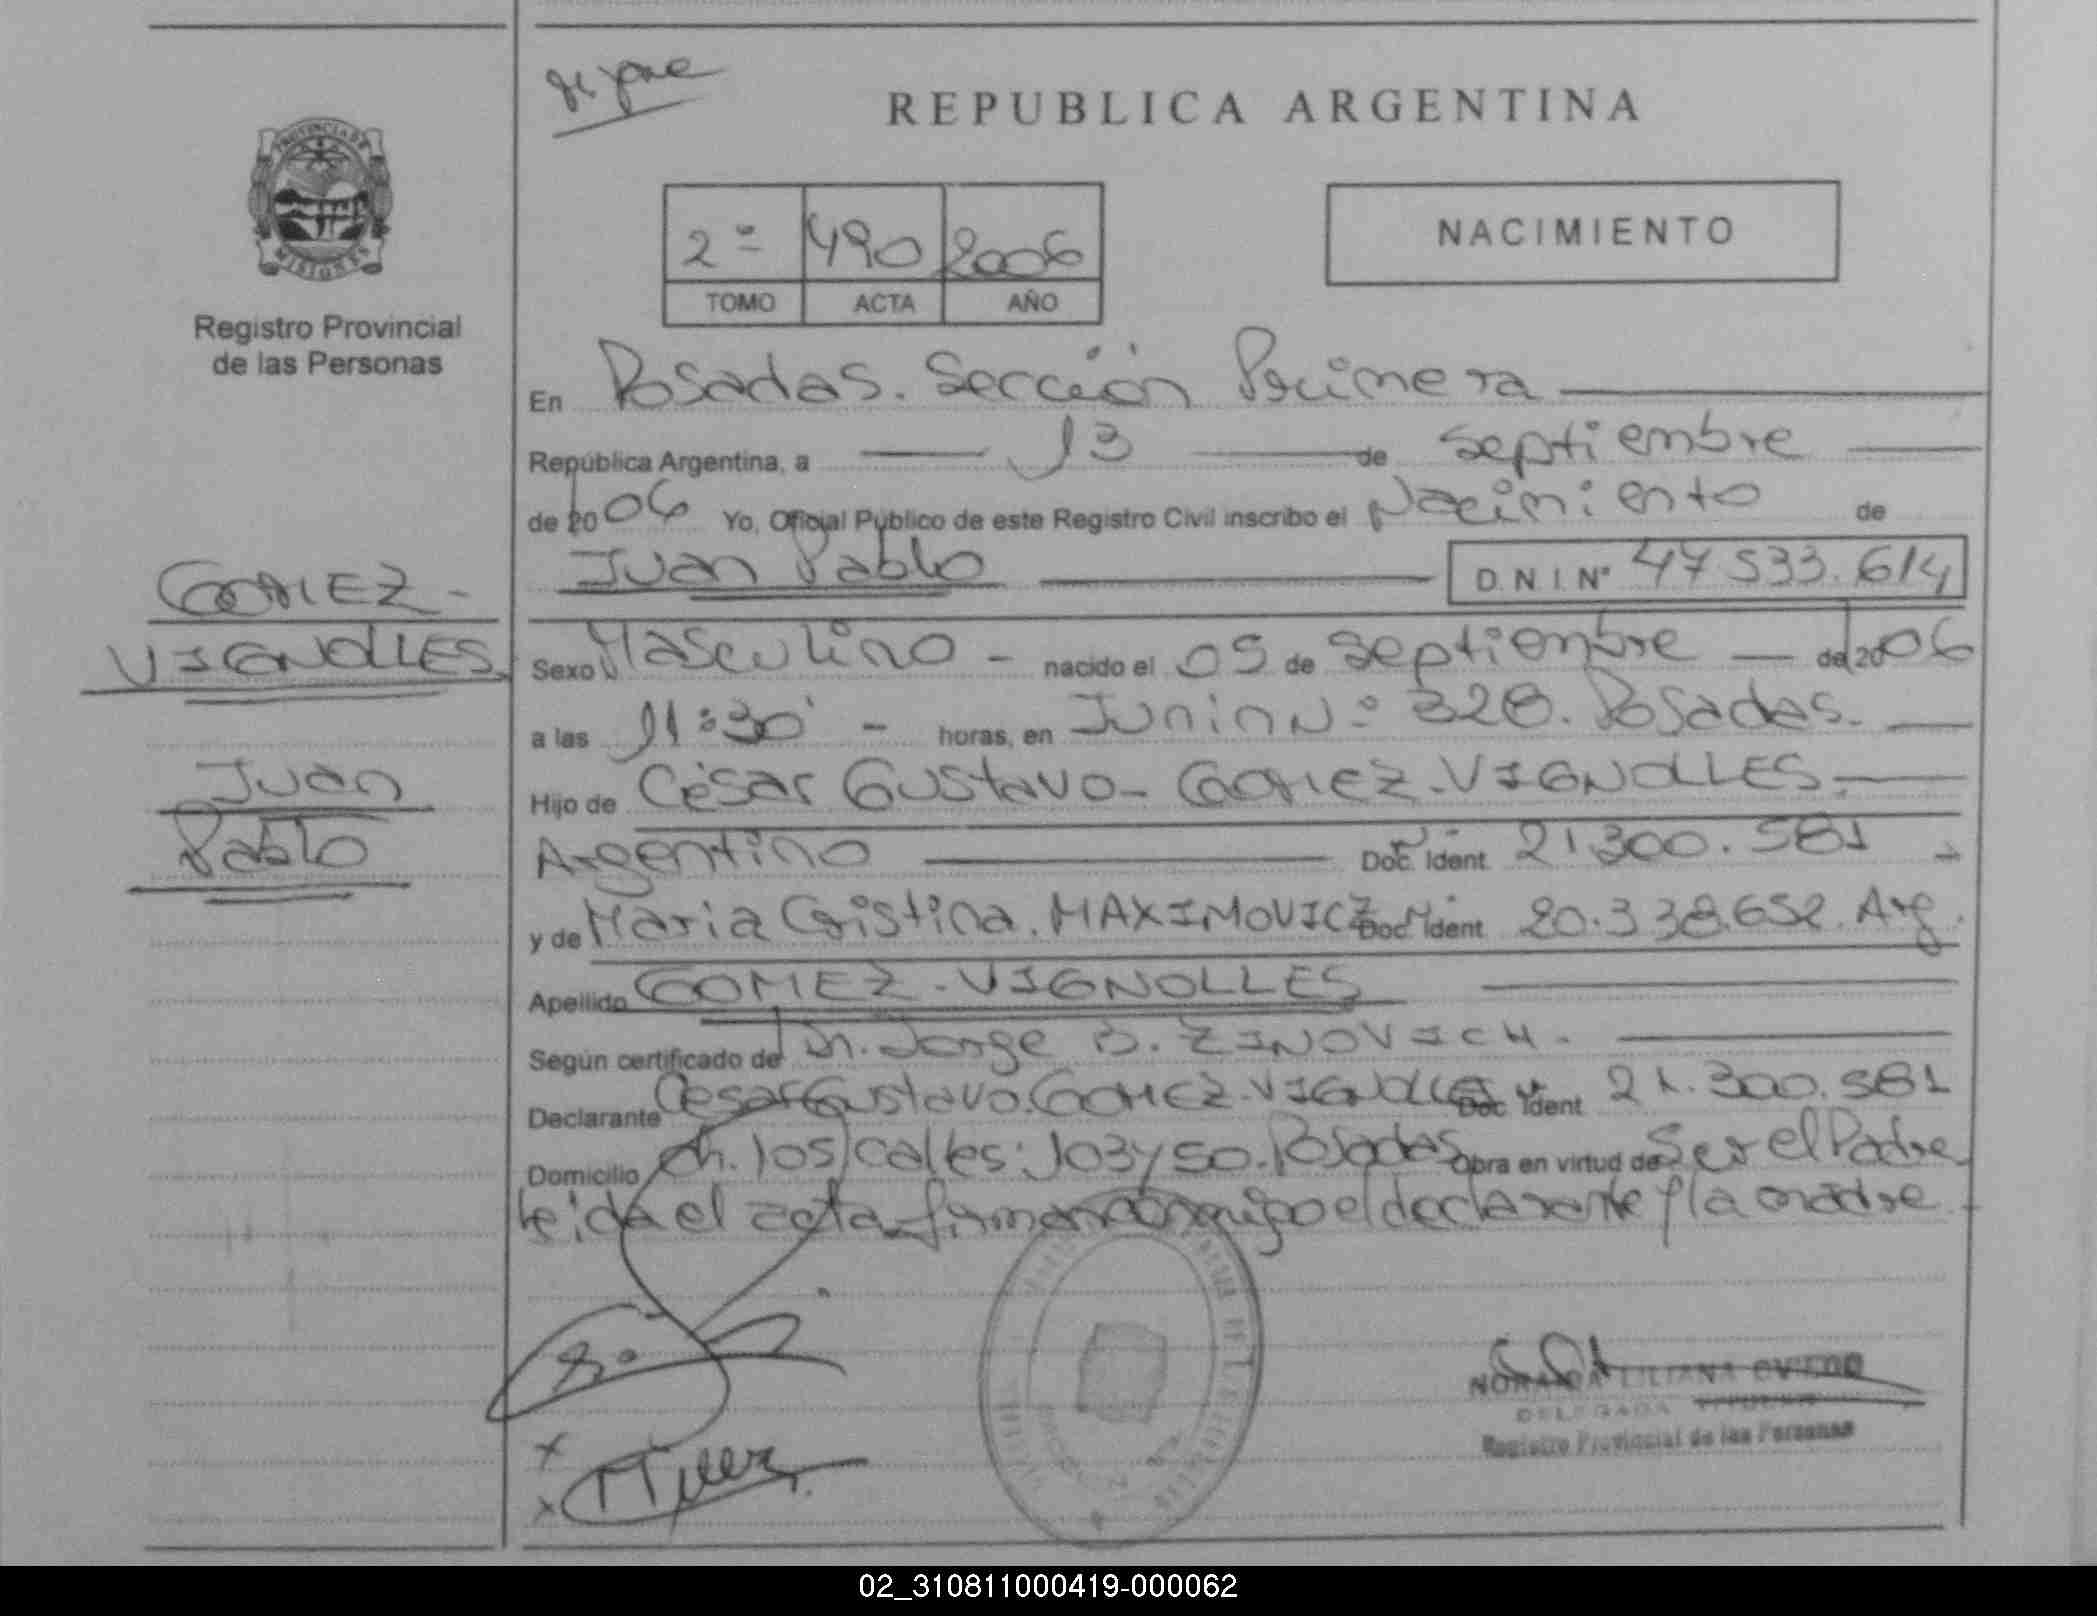 REPUBLICA ARGENTINA
PROVINCIA DE
MISIONES
Registro Provincial
de las Personas
2º 490 2006
TOMO ACTA AÑO
NACIMIENTO
En Posadas. Sección Primera
República Argentina, a 13 de Septiembre
de 2006 Yo, Oficial Público de este Registro Civil inscribo el Nacimiento de
Juan Pablo D.N.I.Nº 47533.614
GOMEZ-
VIGNOLLES
Juan
Pablo
Sexo Masculino - nacido el 05 de Septiembre de 2006
a las 11:30' - horas, en Junin Nº 328. Posadas.
Hijo de César Gustavo- GOMEZ-VIGNOLLES.
Argentino Doc. Ident. 21.300.581
y de Maria Cristina. MAXIMOVICZ Doc. Ident. 20.338.652. Arg.
Apellido GOMEZ-VIGNOLLES
Según certificado de Dr. Jorge B. ZINOVICH.
Declarante Cesar Gustavo. GOMEZ-VIGNOLLES Doc. Ident. 21.300.581
Domicilio Ch. 105 calles: 103 y 50. Posadas Obra en virtud de Ser el Padre
Leida el acta firman conmigo el declarante y la madre
DELEGADA
Registro Provincial de las Personas
02_310811000419-000062